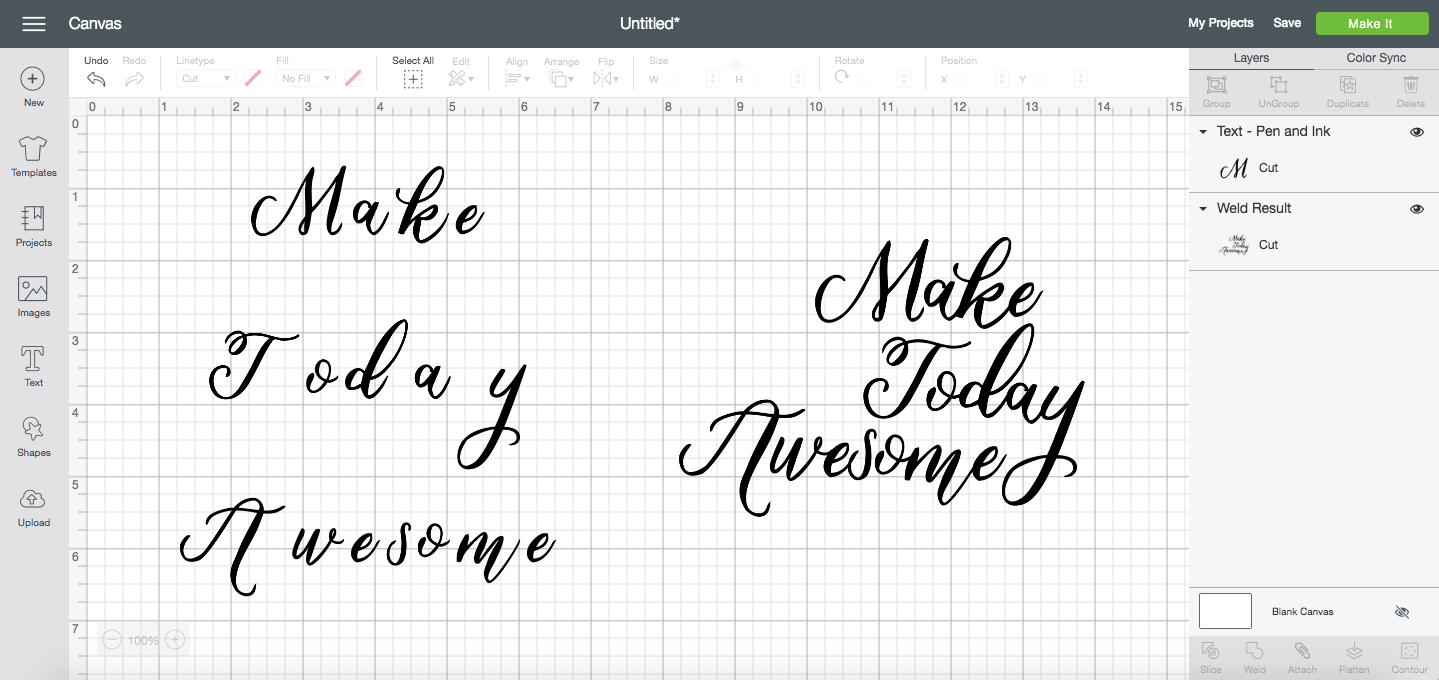 Canvas Untitled* My Projects Save Make It
Undo Redo Linetype Fill Select All Edit Align Arrange Flip Size Rotate Position
Cut No Fill W H X Y
Layers Color Sync
Group UnGroup Duplicate Delete
New
Templates
Projects
Images
Text
Shapes
Upload
0 1 2 3 4 5 6 7 8 9 10 11 12 13 14 15
0
1
2
3
4
5
6
7
Make
Today
Awesome
Make
Today
Awesome
100%
Text - Pen and Ink
M Cut
Weld Result
Make
Today
Awesome
Cut
Blank Canvas
Slice Weld Attach Flatten Contour